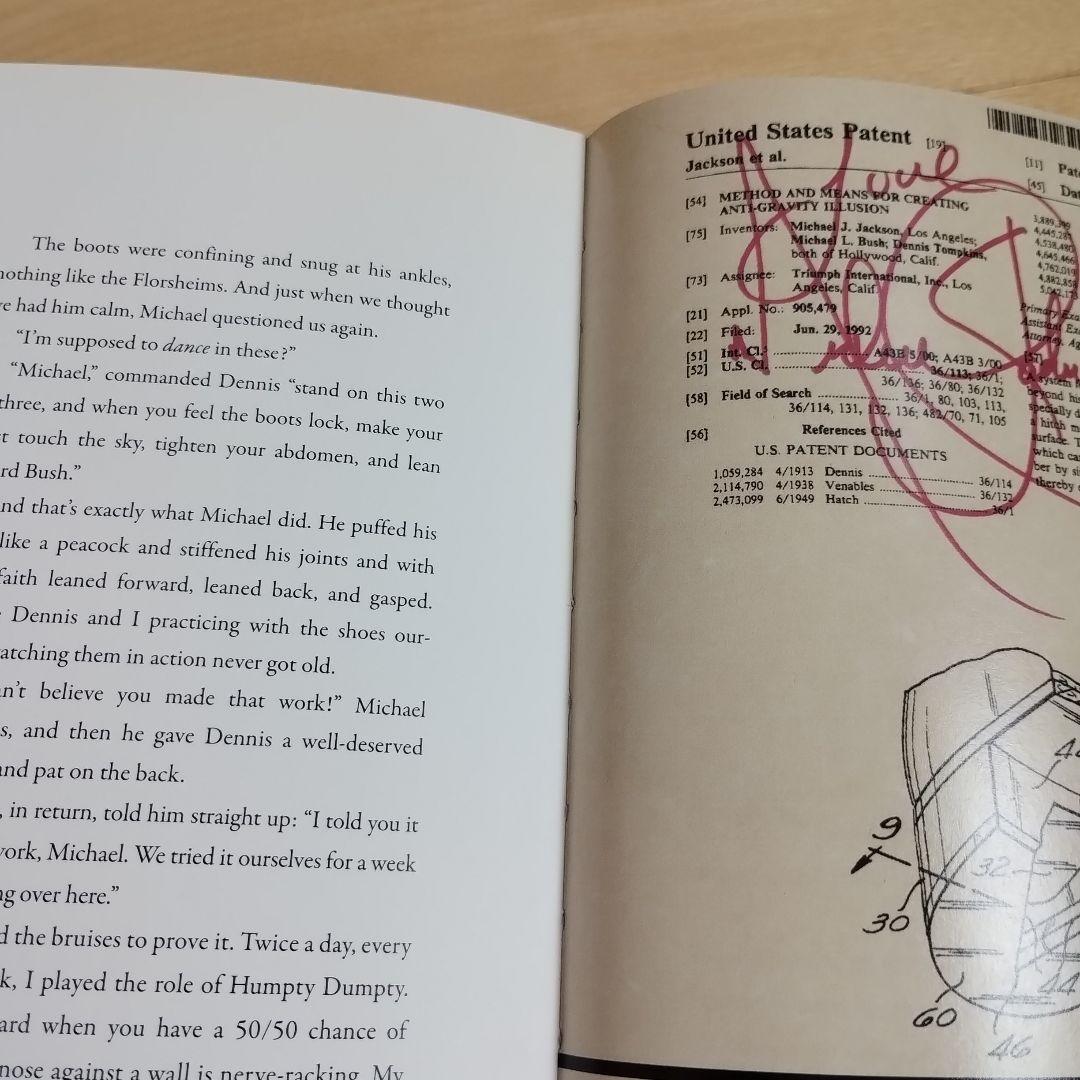 The boots were confining and snug at his ankles,
nothing like the Florsheims. And just when we thought
had him calm, Michael questioned us again.
“I’m supposed to dance in these?”
“Michael,” commanded Dennis “stand on this two
three, and when you feel the boots lock, make your
touch the sky, tighten your abdomen, and lean
Bush.”
that’s exactly what Michael did. He puffed his
like a peacock and stiffened his joints and with
faith leaned forward, leaned back, and gasped.
Dennis and I practicing with the shoes our-
them in action never got old.
believe you made that work!” Michael
and then he gave Dennis a well-deserved
and pat on the back.
in return, told him straight up: “I told you it
Michael. We tried it ourselves for a week
over here.”
the bruises to prove it. Twice a day, every
I played the role of Humpty Dumpty.
when you have a 50/50 chance of
nose against a wall is nerve-racking. My
United States Patent [19]
Jackson et al.
[54] METHOD AND MEANS FOR CREATING
ANTI-GRAVITY ILLUSION
[75] Inventors: Michael J. Jackson, Los Angeles;
Michael L. Bush; Dennis Tompkins,
both of Hollywood, Calif.
[73] Assignee: Triumph International, Inc., Los
Angeles, Calif.
[21] Appl. No.: 905,479
[22] Filed: Jun. 29, 1992
[51] Int. Cl.⁵ A43B 5/00; A43B 3/00
[52] U.S. Cl. 36/113; 36/1;
36/136; 36/80; 36/132
[58] Field of Search 36/1, 80, 103, 113,
36/114, 131, 132, 136; 482/70, 71, 105
[56] References Cited
U.S. PATENT DOCUMENTS
1,059,284 4/1913 Dennis 36/114
2,114,790 4/1938 Venables 36/132
2,473,099 6/1949 Hatch 36/1
[11]
[45]
3,889,399
4,538,480
4,645,466
4,762,019
4,882,858
[57]
A system
beyond his
specially
a hitch
surface.
which
ber by
thereby
Love
9
30
32
60
44
46